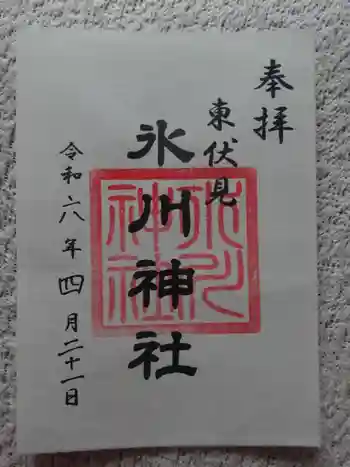 奉拝
東伏見
氷川神社
令和六年四月二十一日
氷川神社